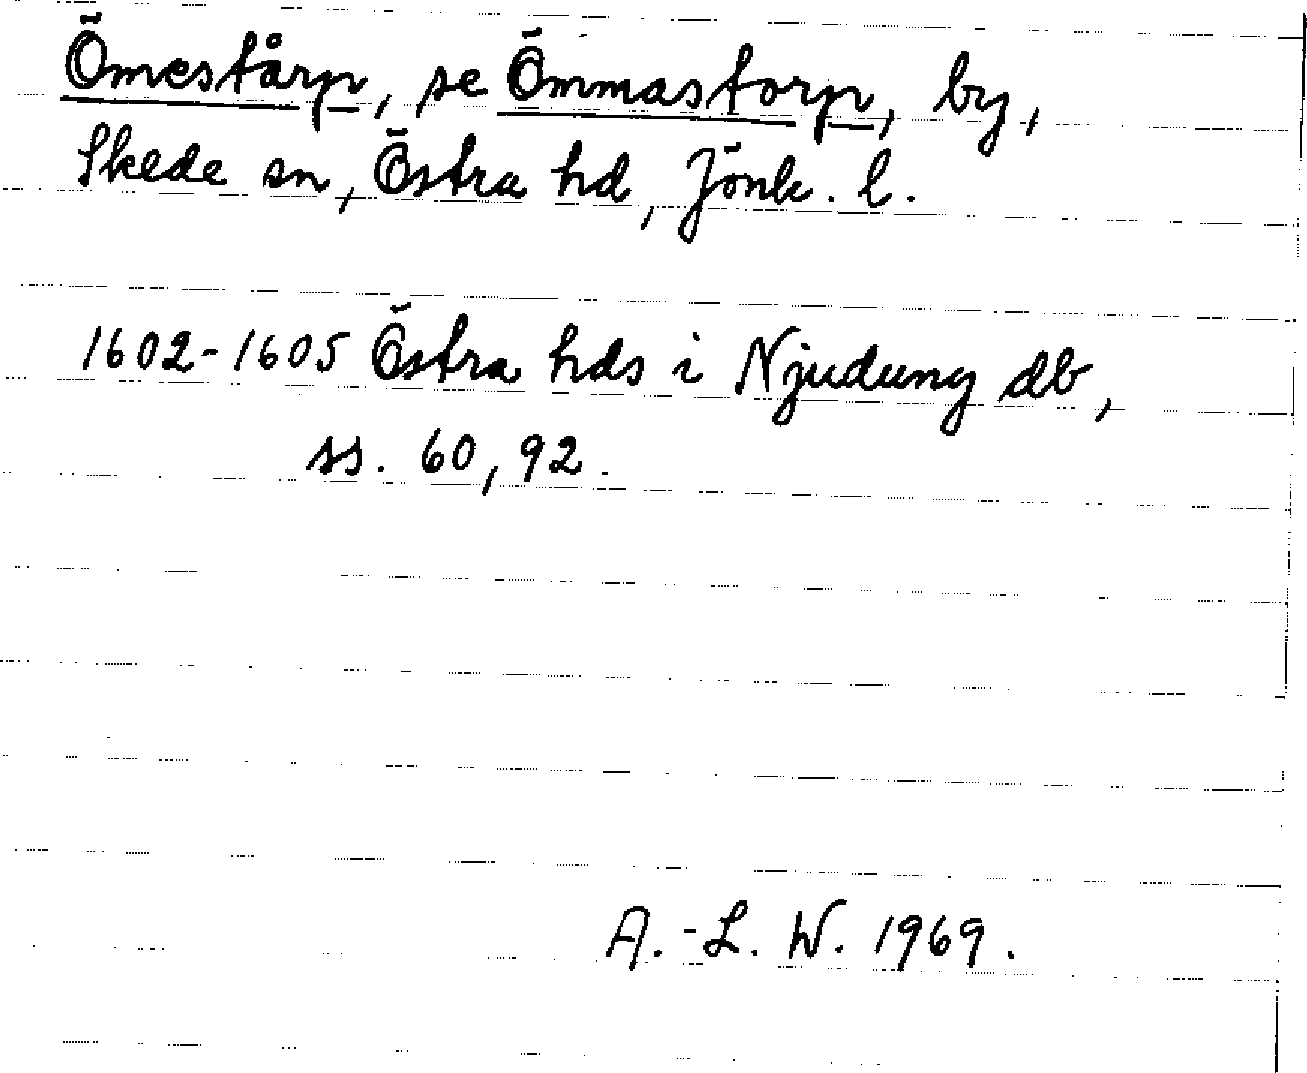 Ömestårp, se Ömmastorp, by,
Skede sn, Östra hd, Jönk. l.
1602-1605 Östra hds i Njudung db,
ss. 60, 92.
A.-L. W. 1969.